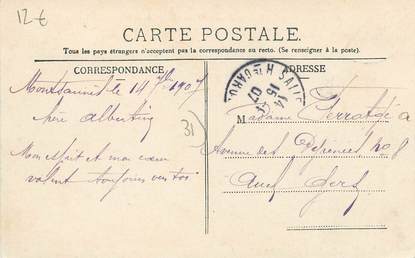 12 €
CARTE POSTALE.
Tous les pays étrangers n'acceptent pas la correspondance au recto. (Se renseigner à la poste).
CORRESPONDANCE
ADRESSE
Montsaunès le 14 7bre 1907
Mon esprit et mon cœur
volent toujours vers toi
31
14
Madame Ferratgé
Avenue des Pyrénées no 8
Auch Gers